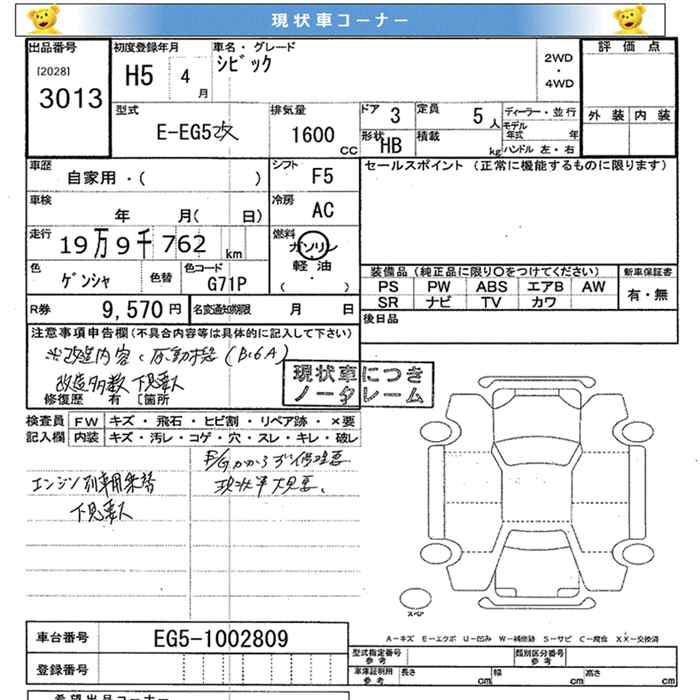 現状車コーナー
出品番号 初度登録年月 車名・グレード 評価点
[2028] H5 4月 シビック 2WD
・
3013 4WD
型式 排気量 ドア 3 定員 5人 ディーラー・並行 外装 内装
E-EG5改 1600cc 形状 HB 積載 kg モデル年式 年
ハンドル 左・右
車歴 シフト F5 セールスポイント (正常に機能するものに限ります)
自家用・( )
車検 年 月( 日) 冷房 AC
走行 19万9千762km 燃料 ガソリン・軽油・( )
色 ゲンシャ 色替 色コード G71P 装備品 (純正品に限り○をつけてください) 新車保証書
PS PW ABS エアB AW 有・無
SR ナビ TV カワ
R券 9,570円 名変通知期限 月 日 後日品
注意事項申告欄(不具合内容等は具体的に記入して下さい)
※改造内容:原動機(B16A)
改造多数 下見要
修復歴 有 [箇所
現状車につき
ノークレーム
検査員 FW キズ・飛石・ヒビ割・リペア跡・×要
記入欄 内装 キズ・汚レ・コゲ・穴・スレ・キレ・破レ
現状車 下見要。
エンジン
下見要
スペア
A-キズ E-エクボ U-凹み W-補修跡 S-サビ C-腐食 XX-交換済
車台番号 EG5-1002809 型式指定番号 参考 類別区分番号 参考
登録番号 車庫証明用 参考 長さ cm 幅 cm 高さ cm
希望出品コーナー